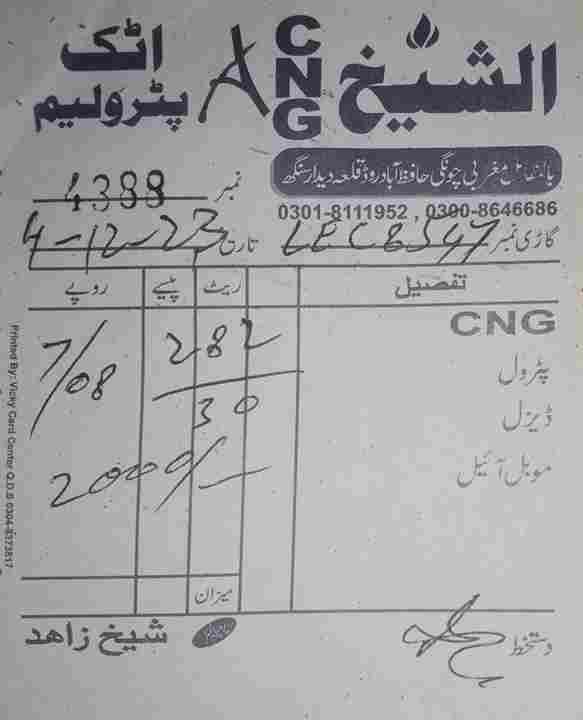 الشیخ CNG اٹک پٹرولیم
بالمقابل مغربی چونگی حافظ آباد روڈ قلعہ دیدار سنگھ
0301-8111952 , 0300-8646686
نمبر 4388
گاڑی نمبر LEC8547 تاریخ 4-12-23
تفصیل ریٹ پیسے روپے
CNG
پٹرول 282 7/08
ڈیزل 30
موبل آئیل 2000/-
میزان
دستخط شیخ زاھد
Printed By: Vicky Card Center Q.D.S 0304-6373817